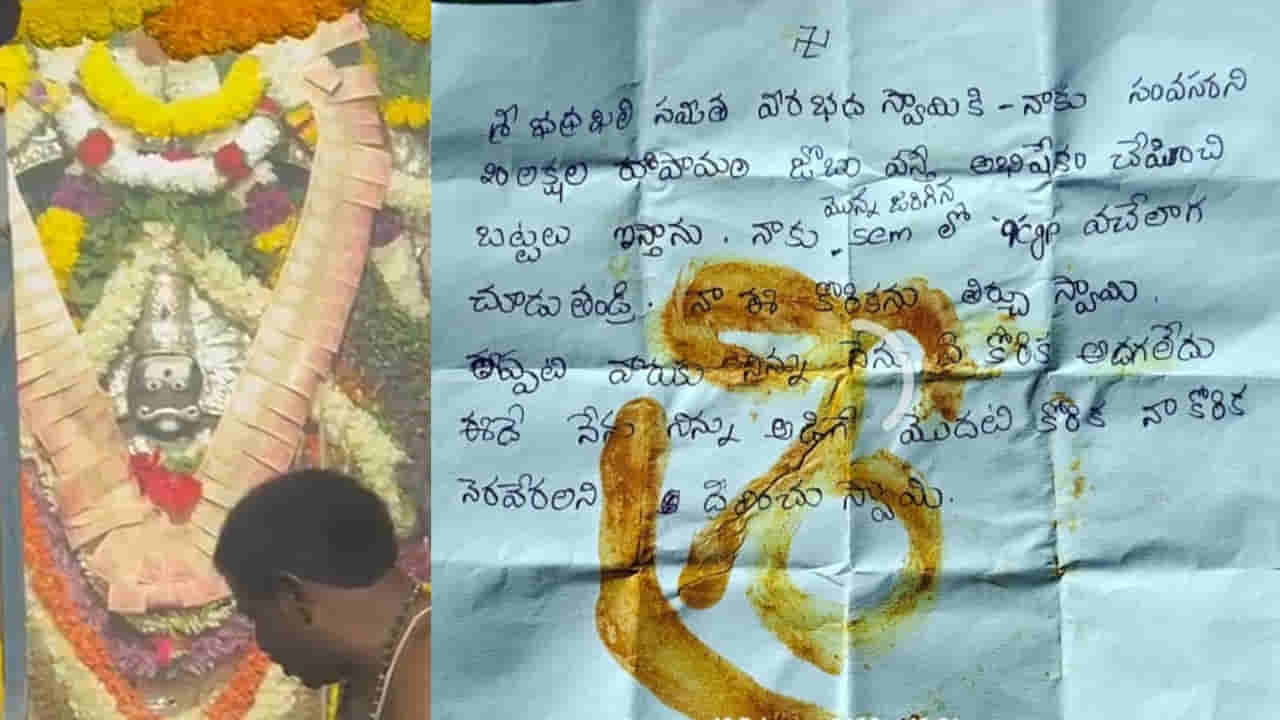 శ్రీ భద్రకాళి సమేత వీరభద్ర స్వామికి - నాకు సంవసరని
లక్షల రూపాయల జాబు వస్తే అభిషేకం చేయించి
మొన్న జరిగిన
బట్టలు ఇస్తాను. నాకు sem లో వచేలాగ
చూడు తండ్రి. నా ఈ కొరికను తిర్చు స్వామి.
ఇప్పటి వరకు నిన్ను నేను ఏ కోరిక అడగలేదు
ఇదే నేను నిన్ను అడిగే మొదటి కోరిక నా కోరిక
నెరవేరలని దివించు స్వామి.